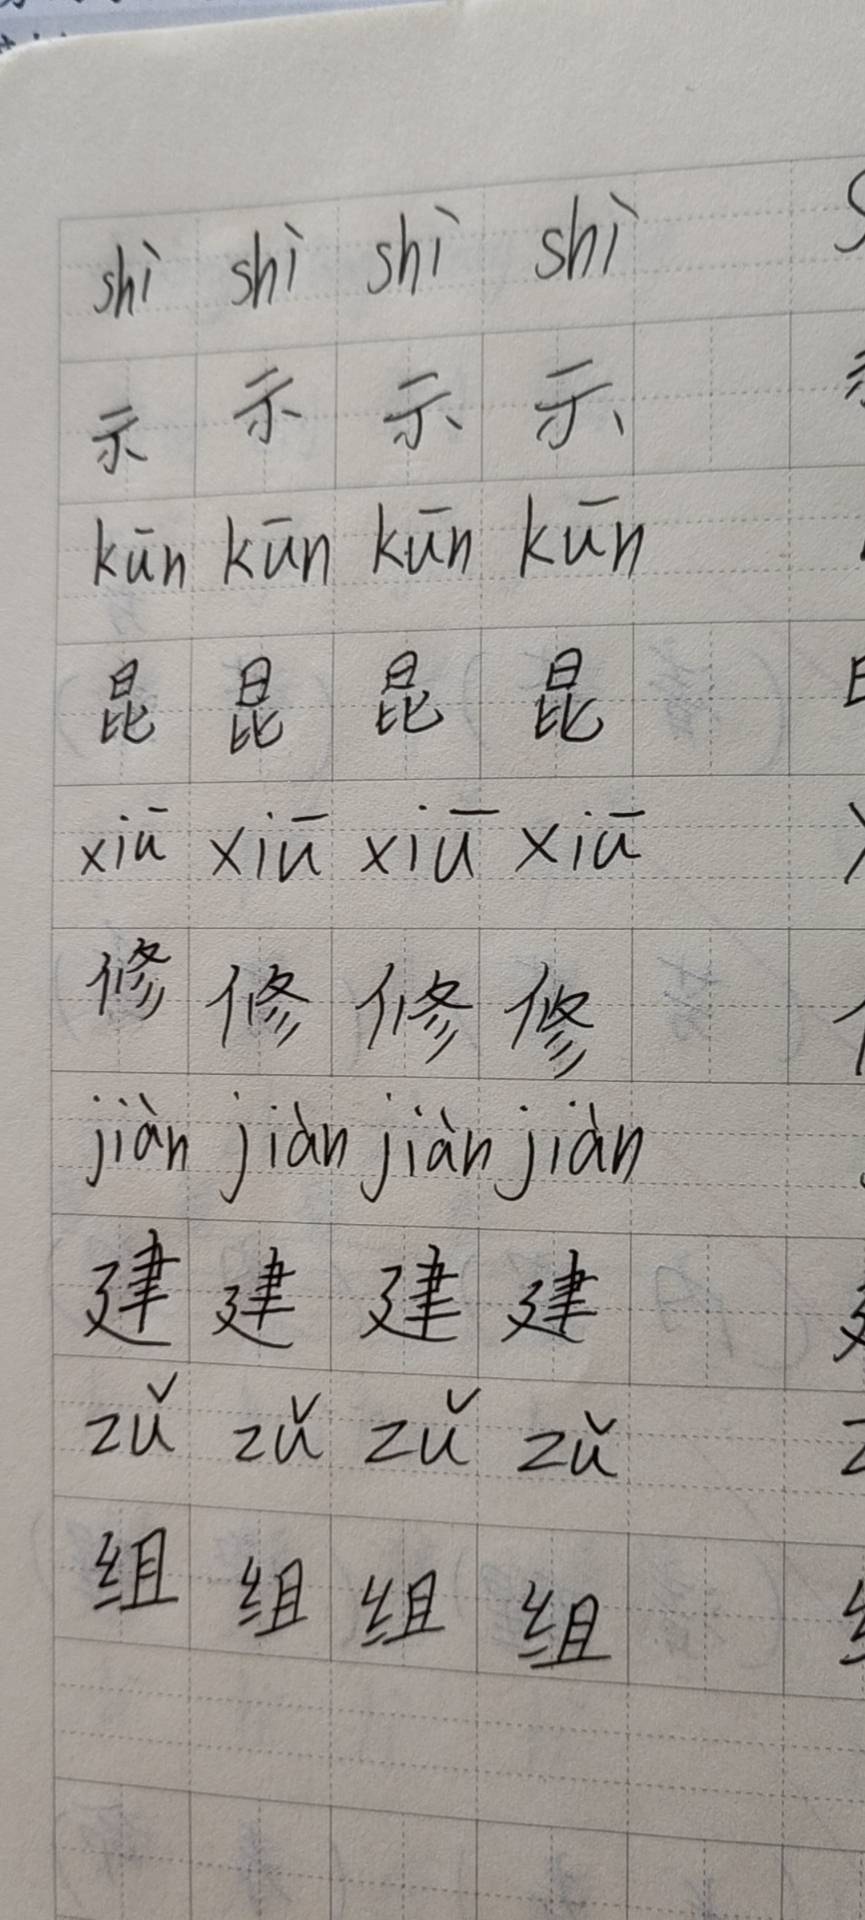 shì shì shì shì
示 示 示 示
kūn kūn kūn kūn
昆 昆 昆 昆
xiū xiū xiū xiū
修 修 修 修
jiàn jiàn jiàn jiàn
建 建 建 建
zǔ zǔ zǔ zǔ
组 组 组 组